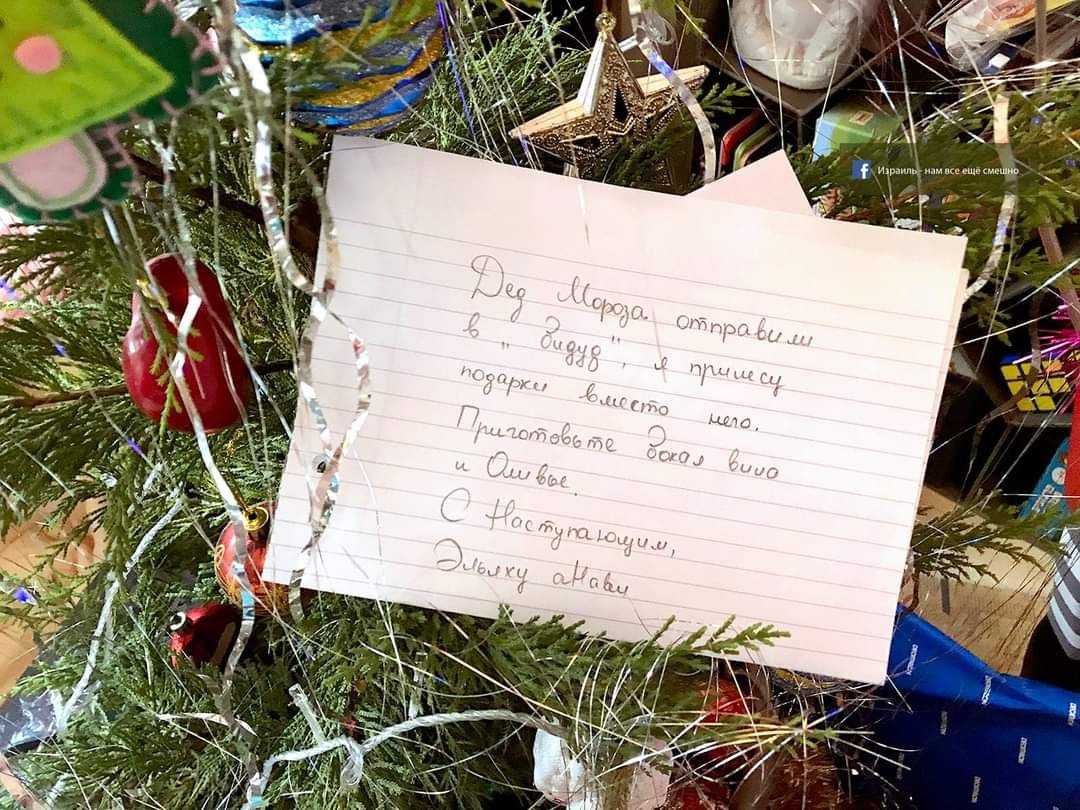 Израиль - нам все ещё смешно
Дед Мороза отправили
в "бидуд", я принесу
подарки вместо него.
Приготовьте бокал вина
и Оливье.
С Наступающим,
Эльяху аНави